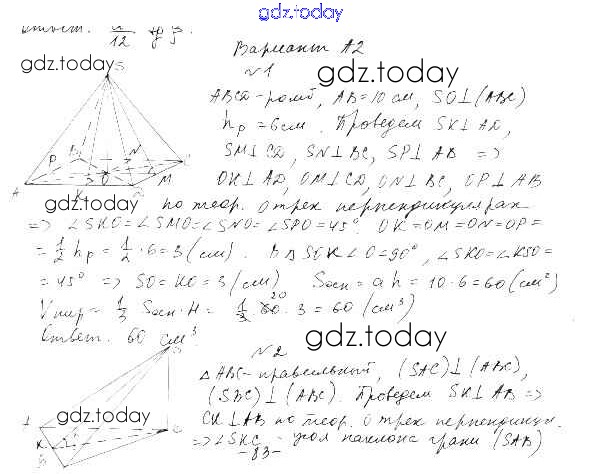 gdz.today
Вариант А2
gdz.today
№1
gdz.today
ABCD-ромб, AB=10 см, SO⊥(ABC)
hр = 6см. Проведем SK⊥AD,
SM⊥CD, SN⊥BC, SP⊥AB =>
OK⊥AD, OM⊥CD, ON⊥BC, OP⊥AB
gdz.today
по теор. о трех перпендикулярах
=> ∠SKO=∠SMO=∠SNO=∠SPO=45°. OK=OM=ON=OP=
= 1/2 hр = 1/2 · 6 = 3 (см). В Δ SOK ∠O=90°, ∠SKO=∠KSO=
= 45° => SO=KO=3 (см) Sосн = ah = 10·6=60 (см²)
Vпир = 1/3 Sосн·H = 1/3 60 20 · 3 = 60 (см³)
Ответ. 60 см³.
gdz.today
№2
Δ ABC-правильный, (SAC)⊥(ABC),
(SBC)⊥(ABC). Проведем SK⊥AB =>
gdz.today
CK⊥AB по теор. о трех перпендикул.
=> ∠SKC - угол наклона грани (SAB)
-83-
gdz.today